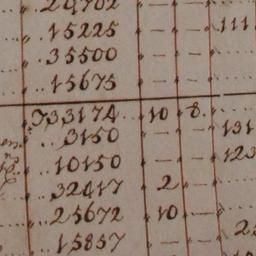 15225 — — 111
35500 — —
15675 — —
733174 10 8
3150 — — 131
10150 — — 123
32417 2 —
25672 10 —
15857 — —